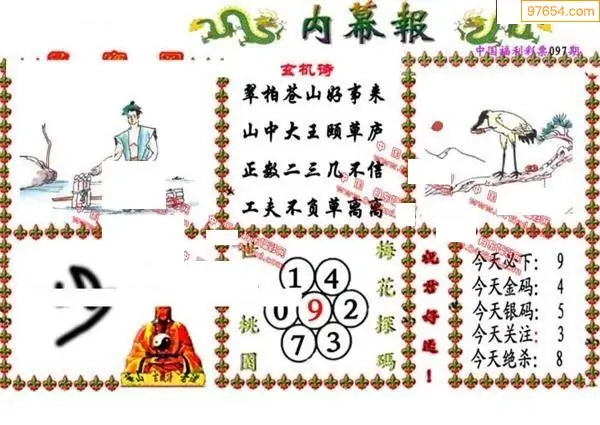 97654.com
内幕報
中国福利彩票097期
玄机诗
翠柏苍山好事来
山中大王颐草庐
正数二三几不信
工夫不负草离离
世桃图
梅花探碼
1 4
0 9 2
7 3
祝君好运！
今天必下：9
今天金码：4
今天银码：5
今天关注：3
今天绝杀：8